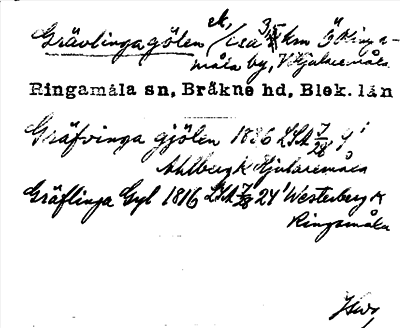 Grävlingagölen ek, / c:a 3,5 km Ö Ringa-
måla by, V Hjularemåla
Ringamåla sn, Bräkne hd, Blek. län
Gräfvinga gjölen 1886 LSA 7/28 9'
Ahlberg k Hjularemåla
Gräflinga Gyl 1816 LSA 7/28 24' Westerberg k
Ringamåla